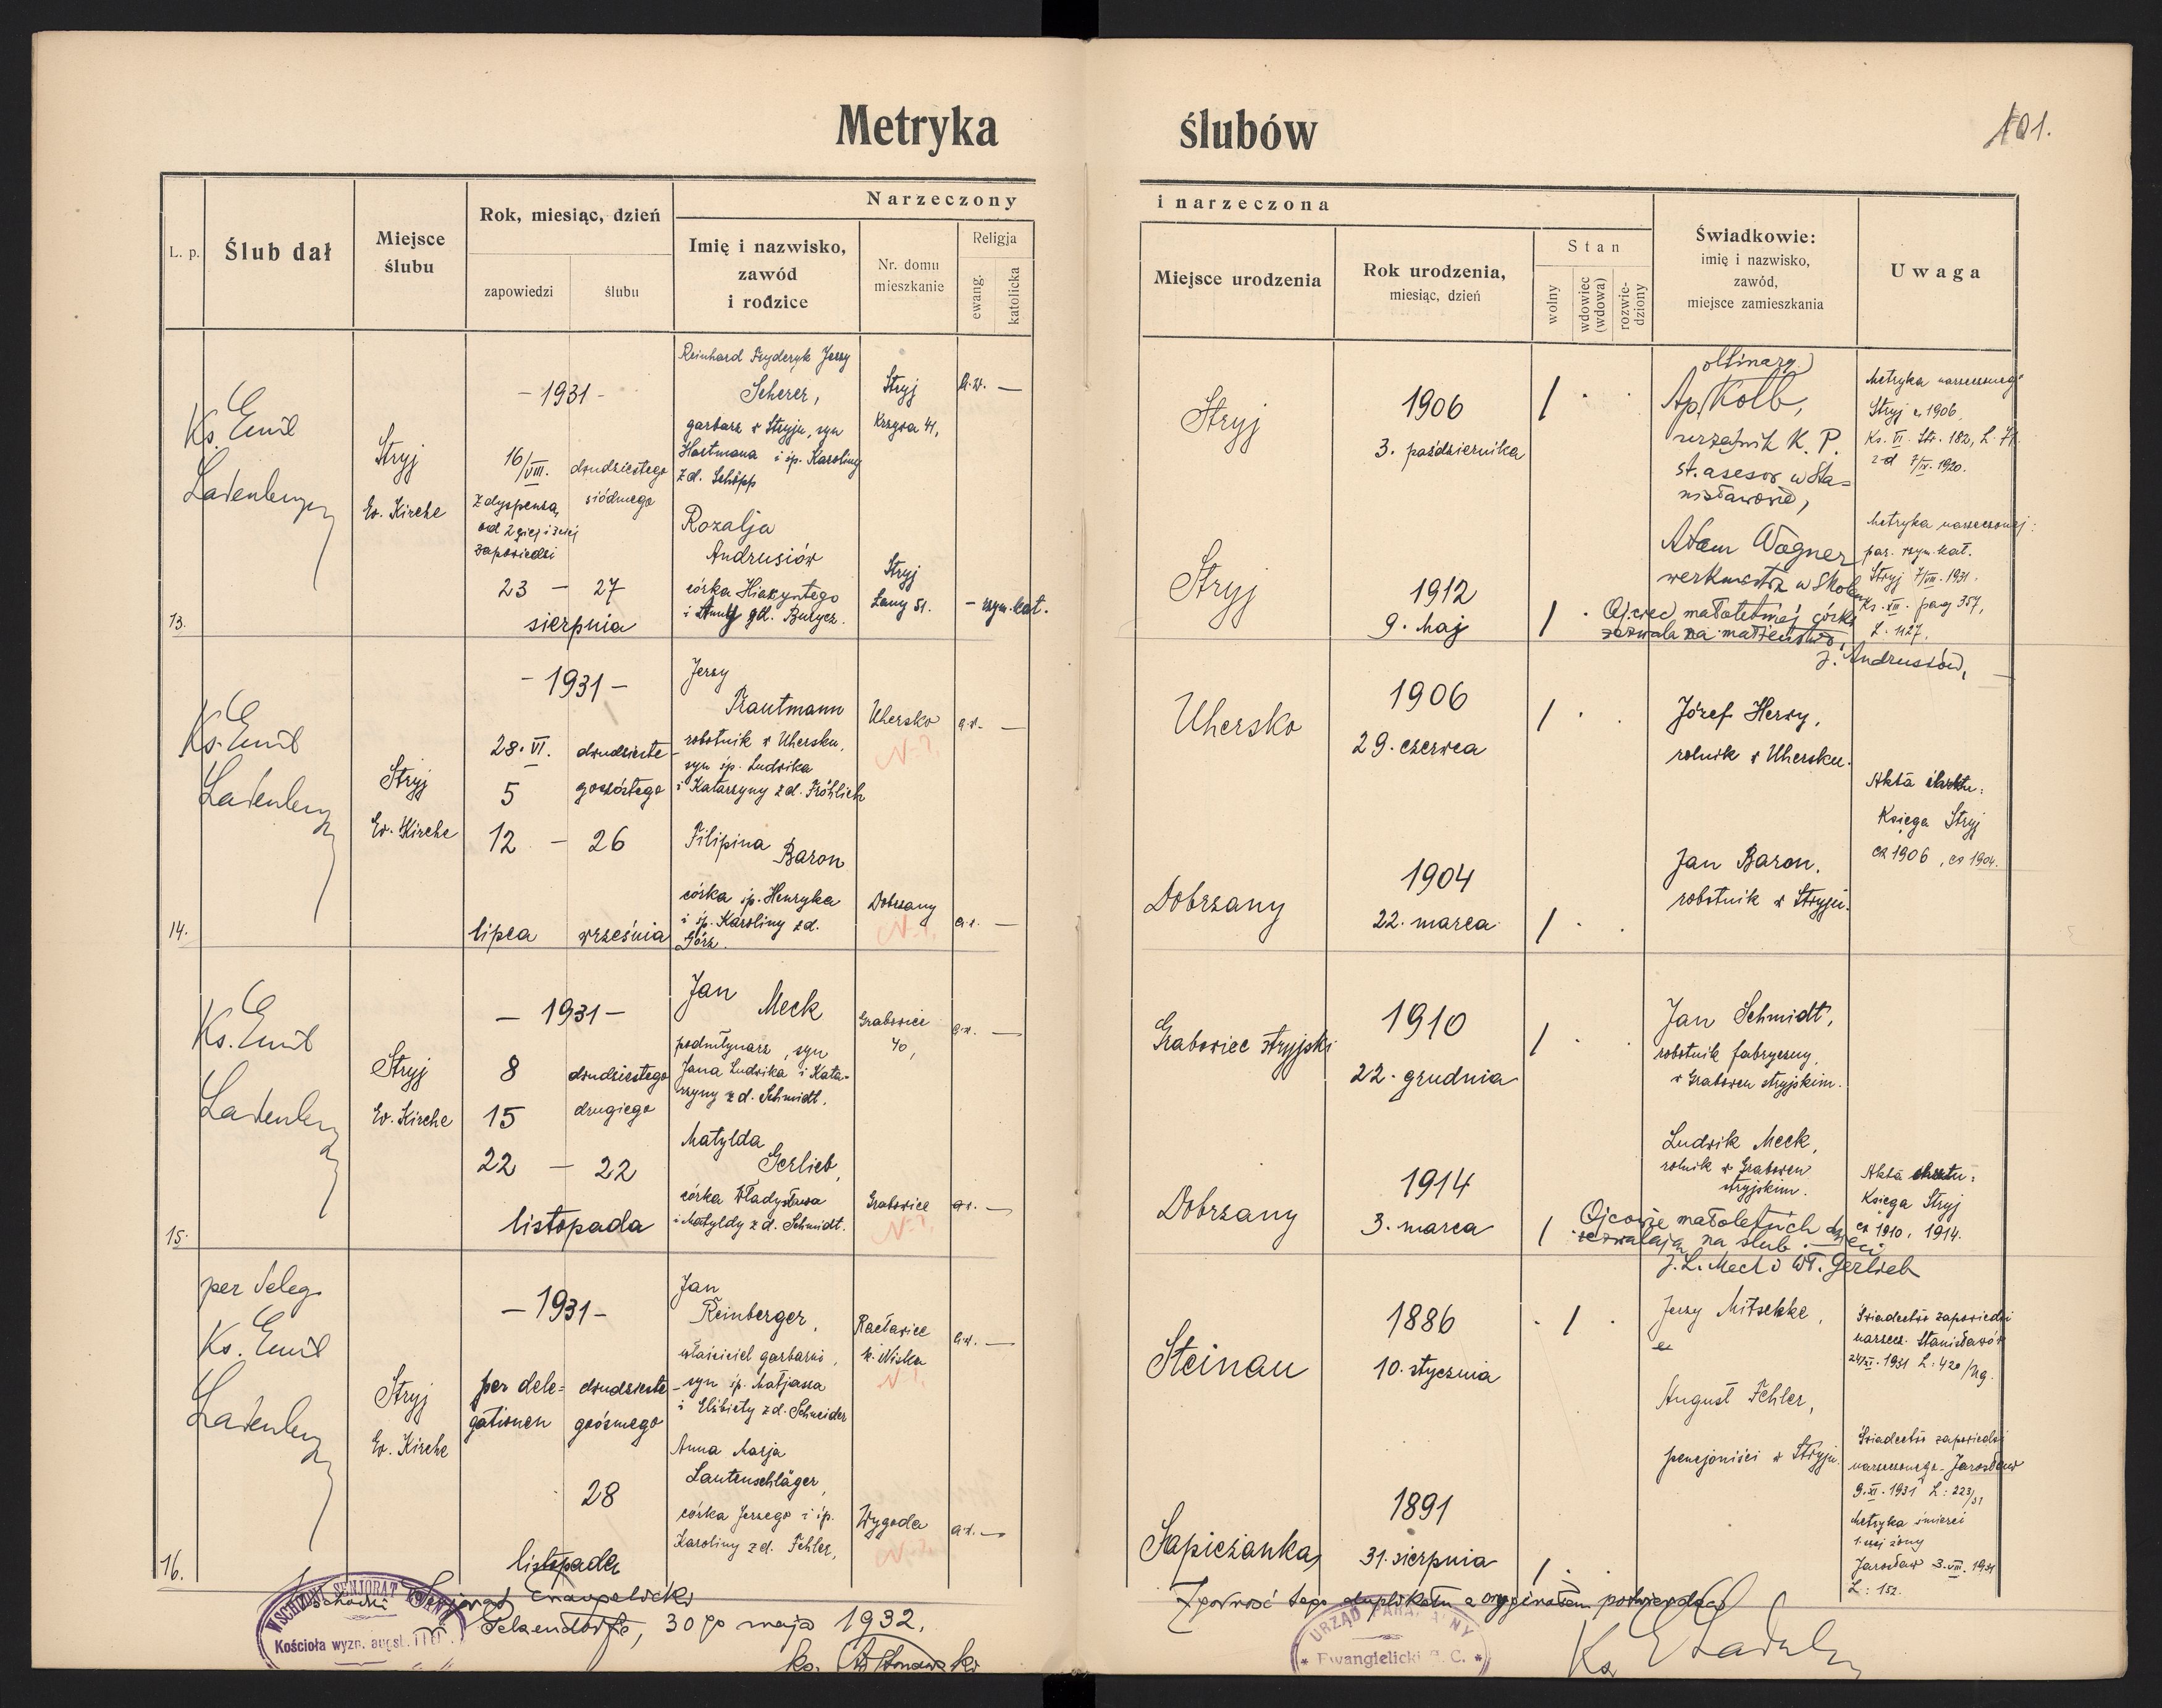 Metryka ślubów
101.
L. p.
Ślub dał
Miejsce
ślubu
Rok, miesiąc, dzień
zapowiedzi
ślubu
Narzeczony
Imię i nazwisko,
zawód
i rodzice
Nr. domu
mieszkanie
Religja
ewang.
katolicka
i narzeczona
Miejsce urodzenia
Rok urodzenia,
miesiąc, dzień
Stan
wolny
wdowiec
(wdowa)
rozwie-
dziony
Świadkowie:
imię i nazwisko,
zawód,
miejsce zamieszkania
Uwaga
13.
Ks. Emil
Ladenberger
Stryj
Ev. Kirche
- 1931 -
16/VIII.
z dyspensą
od 2giej i 3ciej
zapowiedzi
23 - 27
sierpnia
dwudziestego
siódmego
Reinhard Fryderyk Jerzy
Scherer,
garbarz w Stryju, syn
Hartmana i śp. Karoliny
z d. Schöpp
Rozalja
Andrusiów
córka Hiacyntego
i Anny gkl. Bulycz.
Stryj
Krzywa 41,
Stryj
Łany 51.
a.w. —
- rzym.kat.
Stryj
1906
3. października
Stryj
1912
9. Maj
Kolb,
urzędnik K. P.
st. asesor w Sta=
nisławowie,
Adam Wagner
werkmistrz w Skolem
Ojciec małoletniej córki
zezwala na małżeństwo,
J. Andrusiów,
Metryka narzeczonego
Stryj z 1906
Ks. VI. Str. 182, L. 71.
z d 7/IV. 1920.
Metryka narzeczonej:
par. rzym. kat.
Stryj 7/VII. 1931.
Ks. XII. pag 357,
L. 1127.
14.
Ks. Emil
Ladenberger
Stryj
Ev. Kirche
- 1931 -
28. VI.
5
12 - 26
lipca
września
dwudzieste-
goszóstego
Jerzy
Trautmann
robotnik w Uhersku,
syn śp. Ludwika
i Katarzyny z d. Fröhlich
Filipina
Baron
córka śp. Henryka
i śp. Karoliny z d.
Görz.
Uhersko
N-?
Dobrzany
N-?
a.w. —
a.w. —
Uhersko
1906
29. czerwca
Dobrzany
1904
22. marca
Józef Herzy,
rolnik w Uhersku.
Jan Baron,
robotnik w Stryju.
Akta chrztu:
Księga Stryj
ex 1906, ex 1904.
15.
Ks. Emil
Ladenberger
Stryj
Ev. Kirche
- 1931 -
8
15
22 - 22
listopada
dwudziestego
drugiego
Jan
Meck
podmłynarz, syn
Jana Ludwika i Kata-
rzyny z d. Schmidt,
Matylda
Gerlieb,
córka Władysława
i Matyldy z d. Schmidt.
Grabowiec
40,
Grabowiec
N-?
a.w. —
a.w. —
Grabowiec stryjski
1910
22. grudnia
Dobrzany
1914
3. marca
Jan Schmidt,
robotnik fabryczny,
w Grabowcu stryjskim.
Ludwik Meck,
rolnik w Grabowcu
stryjskim.
Ojcowie małoletnich dzieci
zezwalają na ślub:
J. L. Meck Wł. Gerlieb
Akta chrztu:
Księga Stryj
ex 1910, 1914.
16.
per deleg.
Ks. Emil
Ladenberger
Stryj
Ev. Kirche
- 1931 -
per dele=
gationem
dwudzieste-
goósmego
28
listopada
Jan
Reinberger,
właściciel garbarni,
syn śp. Matjasza
i Elżbiety z d. Schneider
Anna Marja
Lautenschläger,
córka Jerzego i śp.
Karoliny z d. Fehler,
Racławice
k. Niska
N-?
Wygoda
N-?
a.w. —
a.w. —
Steinau
1886
10. stycznia
Sapieżanka
1891
31. sierpnia
Jerzy Mitschke,
August Fehler,
pensjoniści w Stryju.
Świadectwo zapowiedzi
narzecz. Stanisławów
24/XI. 1931 L: 420/
Świadectwo zapowiedzi
narzeczonego - Jarosław
9. XI. 1931 L: 223/31
Metryka śmierci
1.szej żony
Jarosław 3. VIII. 1931
L: 152.
Wschodni Senjorat Ewangelicki
Gelsendorf, 30 go maja 1932.
WSCHODNI SENJORAT EWANG.
Kościoła wyzn. augsb. i
Zgodność tego duplikatu z oryginałem potwierdzam
URZĄD PARAFIALNY
* Ewangielicki A. C. *
Ks